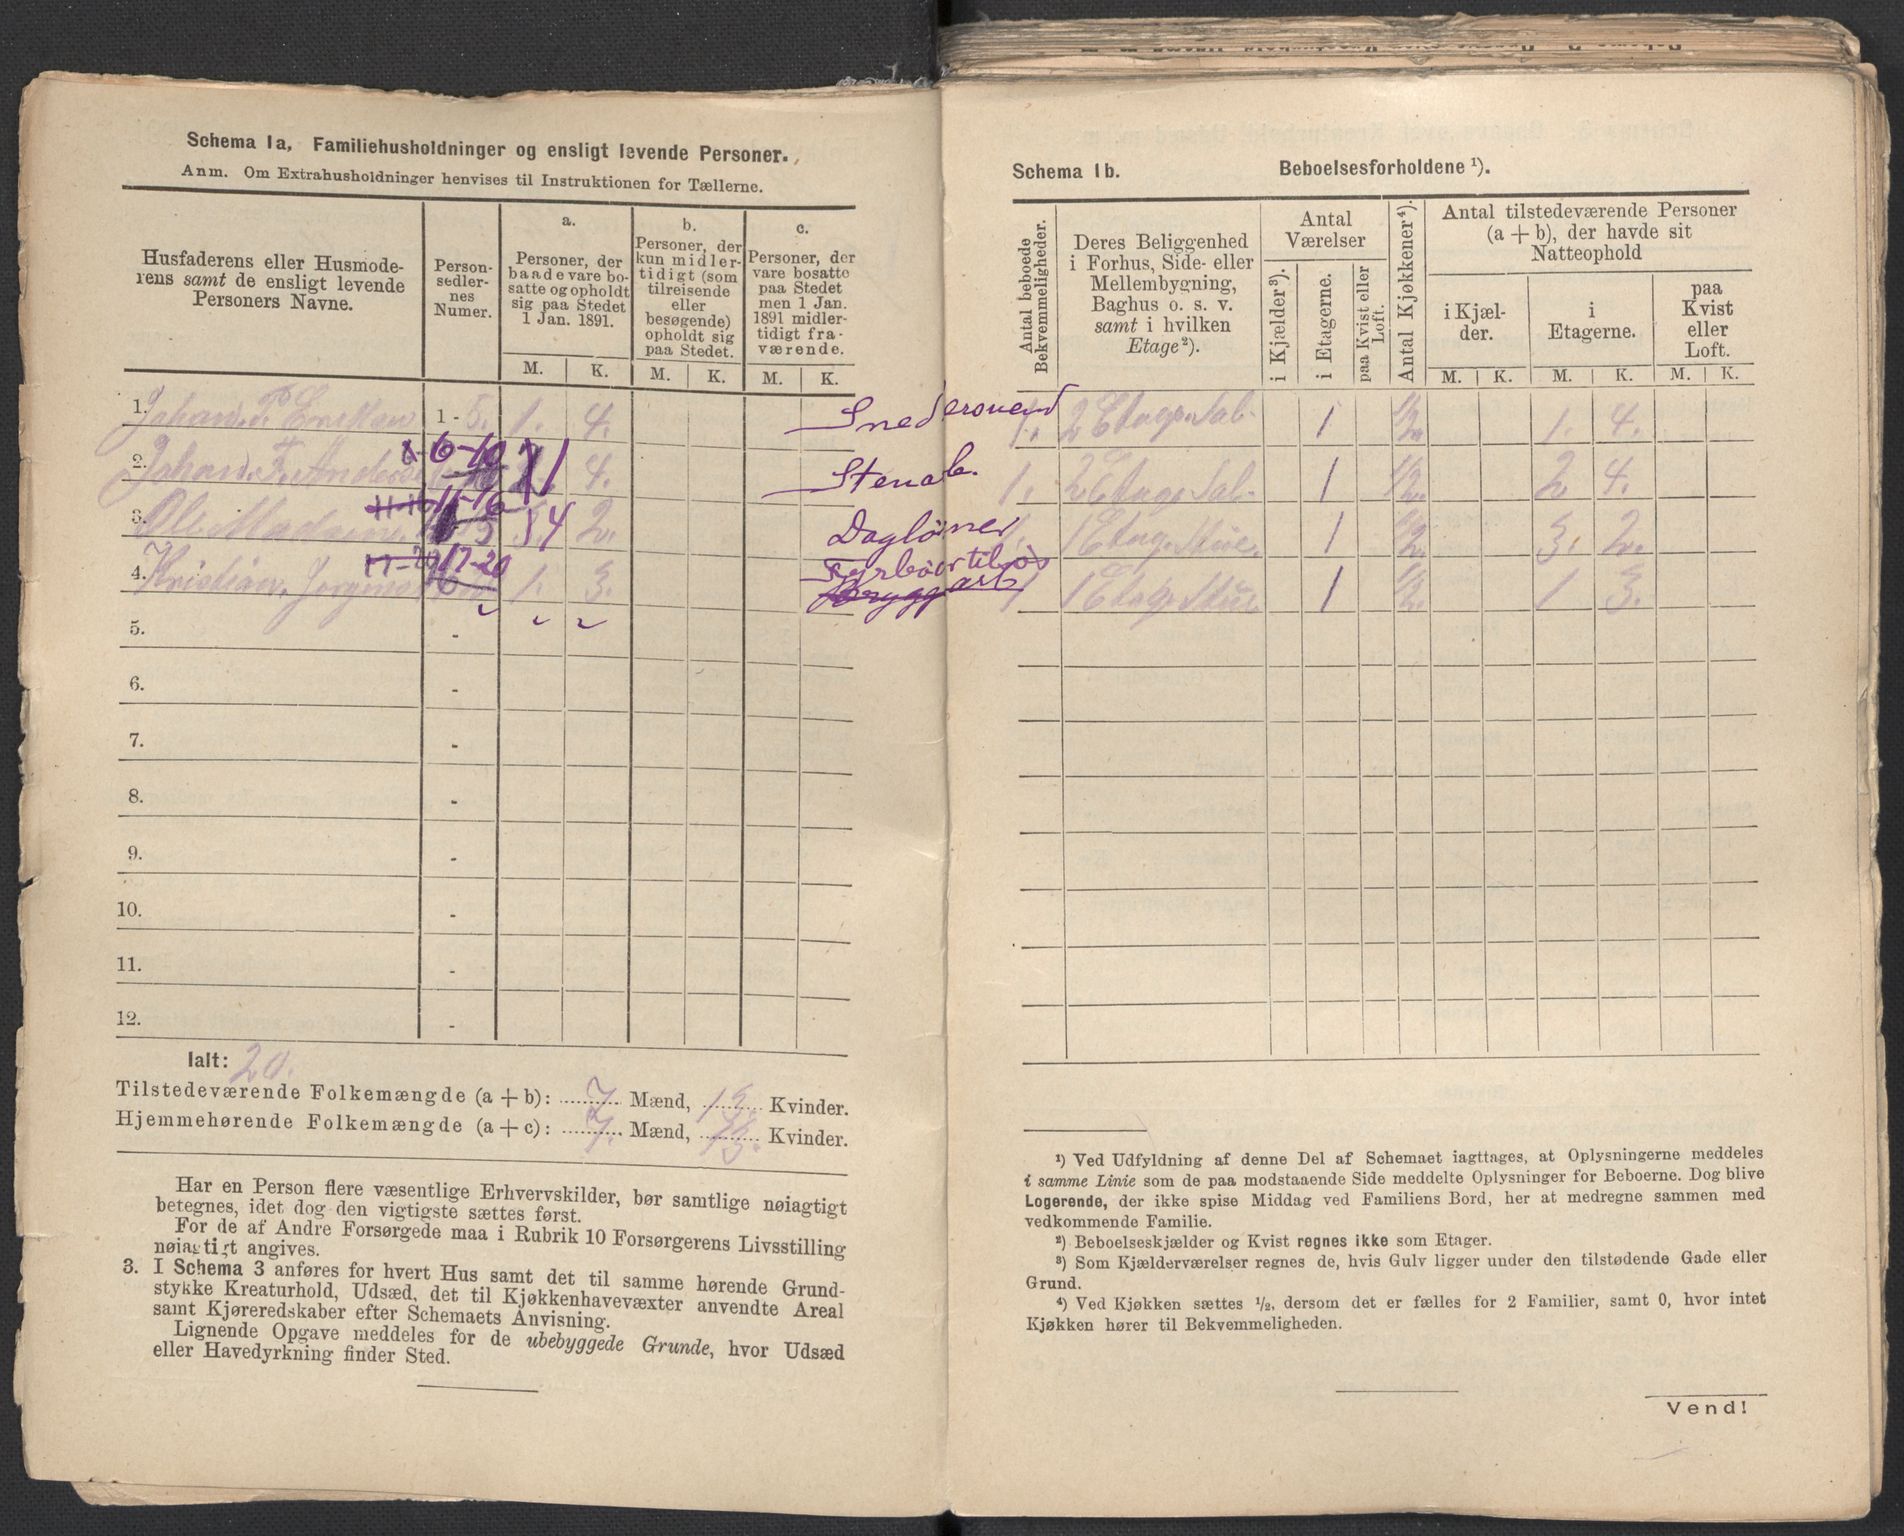 Schema 1a, Familiehusholdninger og ensligt levende Personer.
Anm. Om Extrahusholdninger henvises til Instruktionen for Tællerne.
Husfaderens eller Husmode-
rens samt de ensligt levende
Personers Navne.
Person-
sedler-
nes
Numer.
a.
Personer, der
baade vare bo-
satte og opholdt
sig paa Stedet
1 Jan. 1891.
b.
Personer, der
kun midler-
tidigt (som
tilreisende
eller
besøgende)
opholdt sig
paa Stedet.
c.
Personer, der
vare bosatte
paa Stedet
men 1 Jan.
1891 midler-
tidigt fra-
værende.
M. K. M. K. M. K.
1. Johan P. 1 - 5. 1. 4. Snedkersvend
2. Johan F. Anders 6-10 1 4. Stenarb.
3. Ole Madsen 11-16 4 2. Dagløner
4. Kristian Jørgens 17-20 1. 3. Fyrbøter
Bryggarb
5. -
6. -
7. -
8. -
9. -
10. -
11. -
12. -
Ialt: 20.
Tilstedeværende Folkemængde (a + b): 7 Mænd, 13 Kvinder.
Hjemmehørende Folkemængde (a + c): 7. Mænd, 13. Kvinder.
Har en Person flere væsentlige Erhvervskilder, bør samtlige nøiagtigt
betegnes, idet dog den vigtigste sættes først.
For de af Andre Forsørgede maa i Rubrik 10 Forsørgerens Livsstilling
nøiagtigt angives.
3. I Schema 3 anføres for hvert Hus samt det til samme hørende Grund-
stykke Kreaturhold, Udsæd, det til Kjøkkenhavevæxter anvendte Areal
samt Kjøreredskaber efter Schemaets Anvisning.
Lignende Opgave meddeles for de ubebyggede Grunde, hvor Udsæd
eller Havedyrkning finder Sted.
Schema 1b. Beboelsesforholdene ¹).
Antal beboede
Bekvemmeligheder.
Deres Beliggenhed
i Forhus, Side- eller
Mellembygning,
Baghus o. s. v.
samt i hvilken
Etage ²).
Antal
Værelser
i Kjælder ³).
i Etagerne.
paa Kvist eller
Loft.
Antal Kjøkkener ⁴).
Antal tilstedeværende Personer
(a + b), der havde sit
Natteophold
i Kjæl-
der.
i
Etagerne.
paa
Kvist
eller
Loft.
M. K. M. K. M. K.
1. 2 Etage Sal 1 1/2 1. 4.
1. 2 Etage Sal 1 1/2 2 4.
1. 1 Etage Stue 1 1/2 3. 2.
1 1 Etage Stue 1 1/2 1 3.
¹) Ved Udfyldning af denne Del af Schemaet iagttages, at Oplysningerne meddeles
i samme Linie som de paa modstaaende Side meddelte Oplysninger for Beboerne. Dog blive
Logerende, der ikke spise Middag ved Familiens Bord, her at medregne sammen med
vedkommende Familie.
²) Beboelseskjælder og Kvist regnes ikke som Etager.
³) Som Kjælderværelser regnes de, hvis Gulv ligger under den tilstødende Gade eller
Grund.
⁴) Ved Kjøkken sættes ½, dersom det er fælles for 2 Familier, samt 0, hvor intet
Kjøkken hører til Bekvemmeligheden.
Vend!